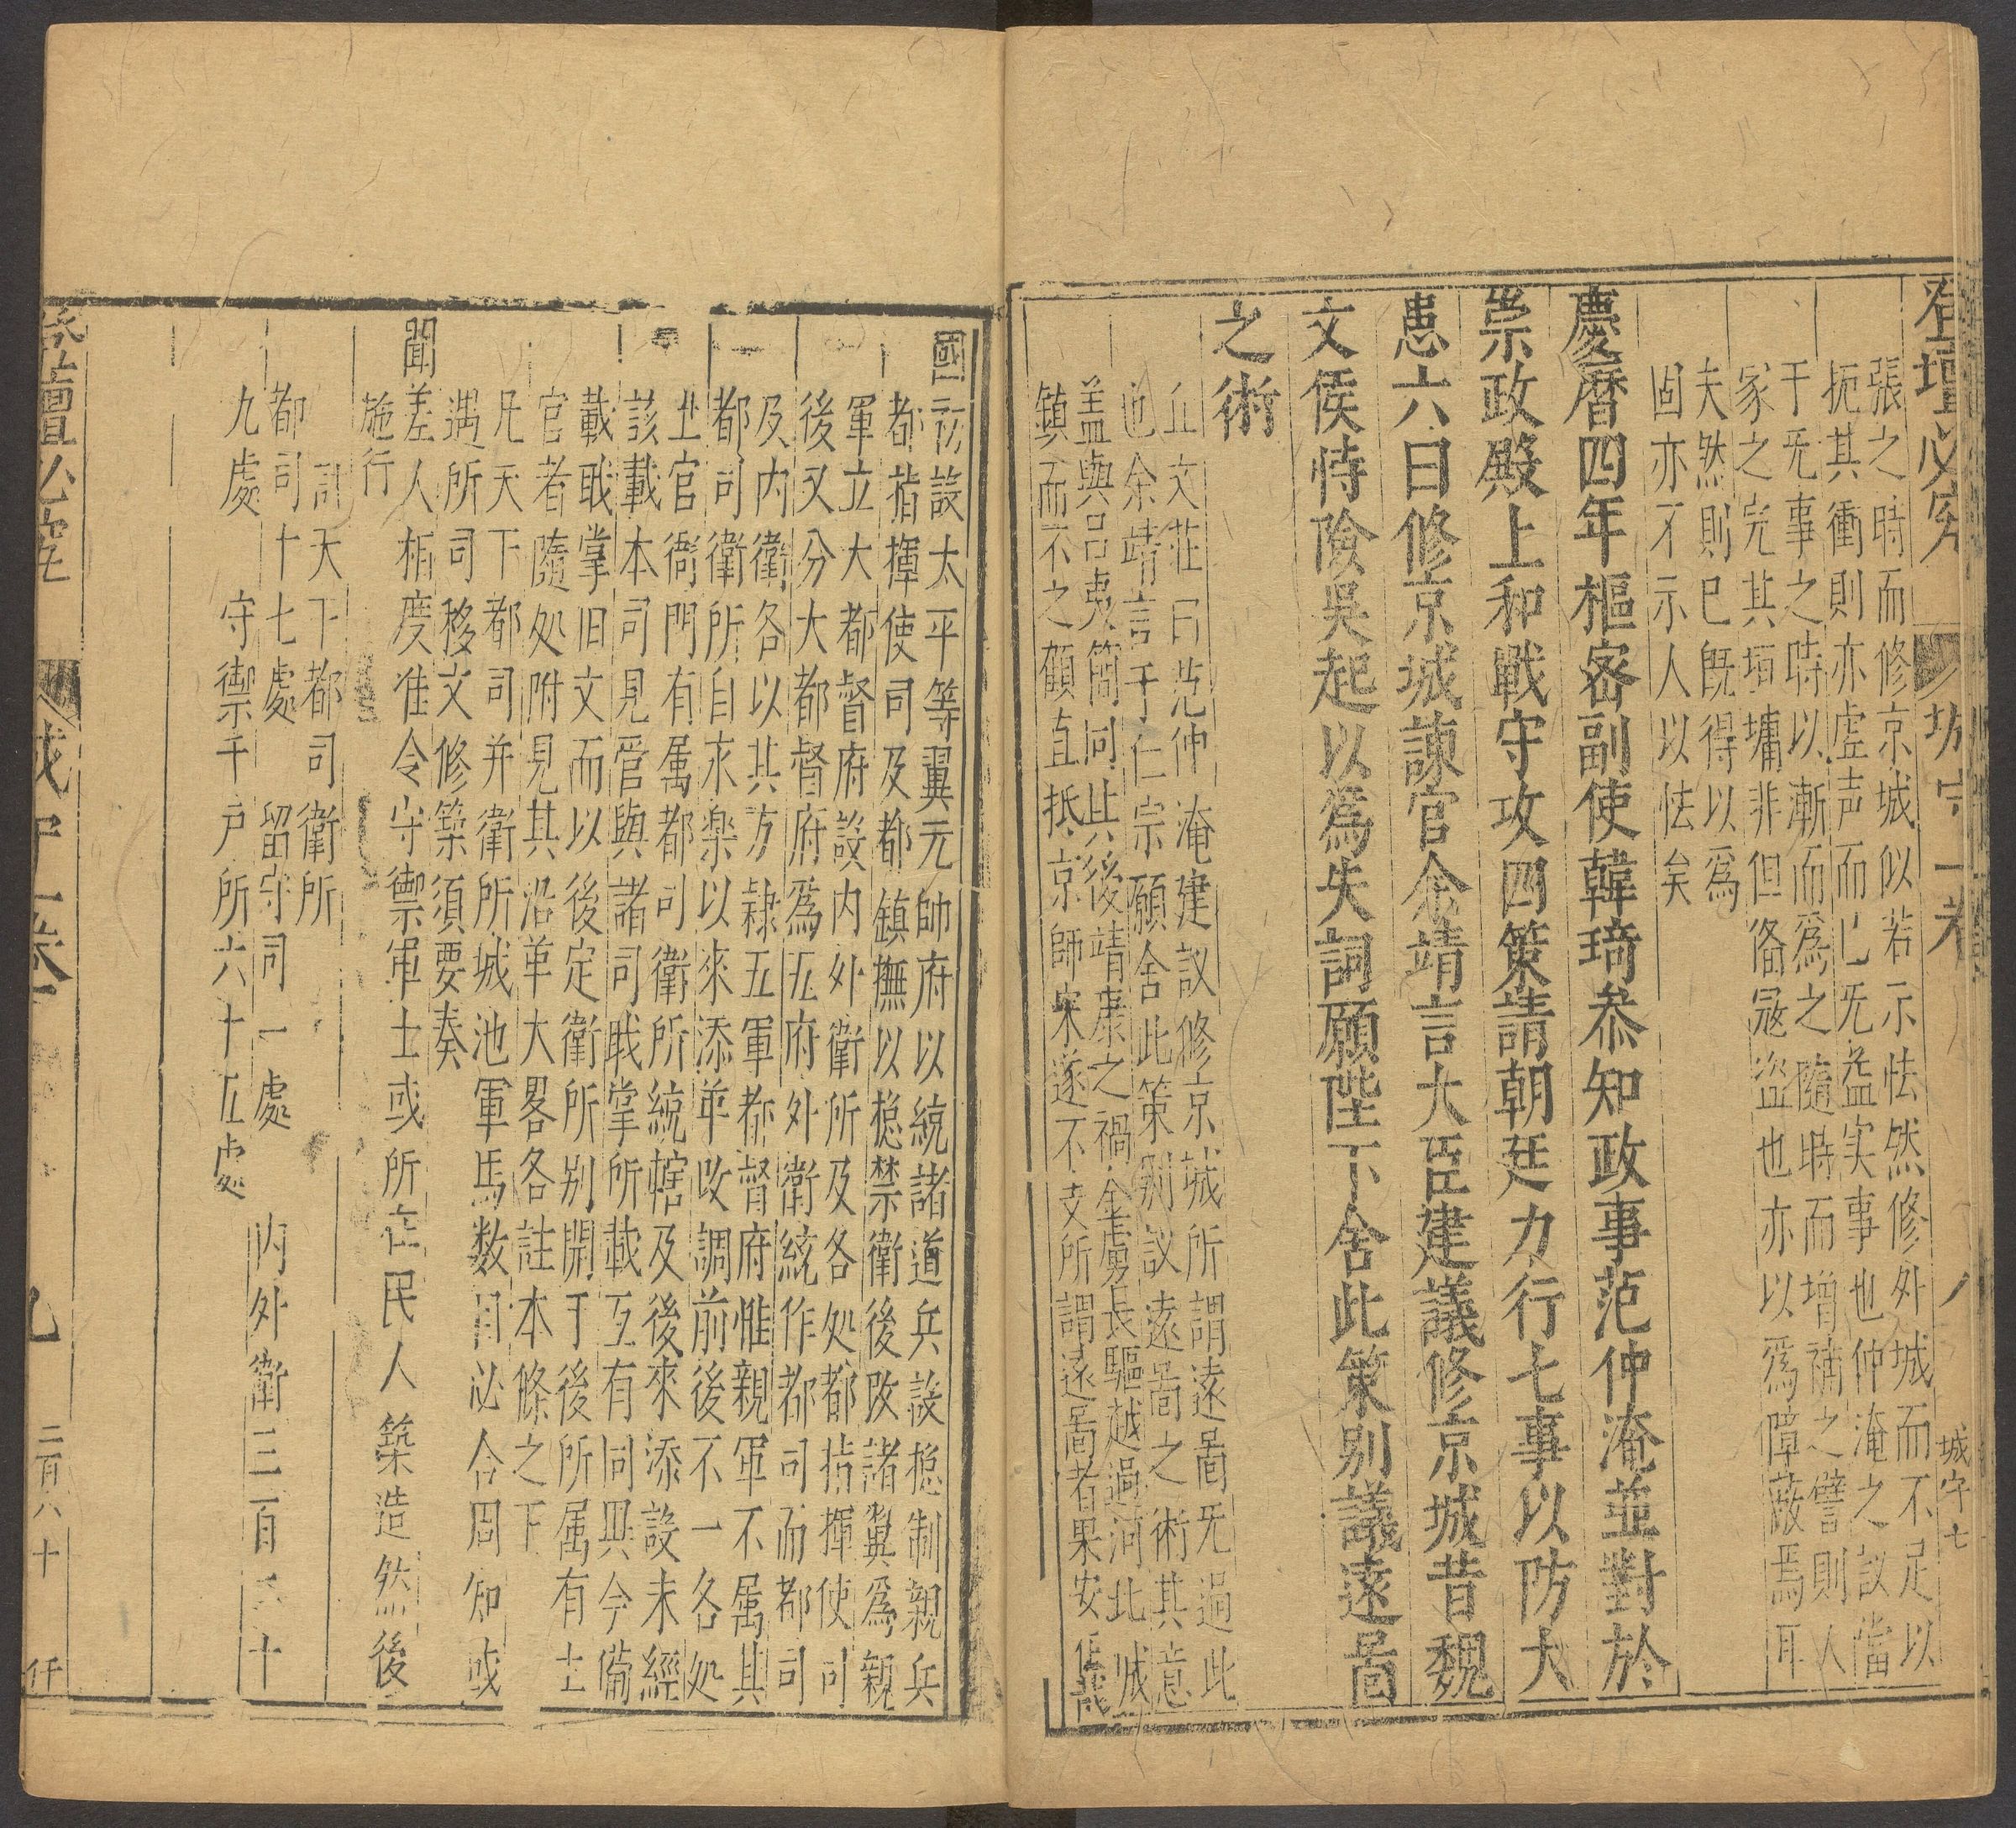 登壇必究
城守一卷
城守七
張之時而修京城似若示怯然修外城而不足以
扼其衝則亦虚声而已旡益実事也仲淹之議當
于旡事之時以漸而爲之隨時而増補之譬則人
家之完其垣墉非但俻冦盗也亦以爲障蔽焉耳
夫然則已既得以爲
固亦不示人以怯矣
慶暦四年樞密副使韓琦叅知政事范仲淹並對於
崇政殿上和戰守攻四策請朝廷力行七事以防大
患六曰修京城諫官余靖言大臣建議修京城昔魏
文侯恃險吳起以爲失詞願陛下舍此策别議遠啚
之術
丘文莊曰范仲淹建議修京城所謂遠啚旡過此
也余靖言于仁宗願舍此策别議遠啚之術其意
盖與吕夷簡同其後靖康之禍金虜長驅越過河北城
鎮而不之顧直抵京師宋遂不支所謂遠啚者果安
國初設太平等翼元帥府以統諸道兵設揔制親兵
都指揮使司及都鎮撫以揔禁衛後改諸翼爲親
軍立大都督府設内外衛所及各处都指揮使司
後又分大都督府爲五府外衛統作都司而都司
及内衛各以其方隷五軍都督府惟親軍不属其
都司衛所自永樂以來添革改調前後不一各处
土官衙門有属都司衛所統轄及後來添設未經
該載本司見管與諸司職掌所載互有同異今備
載職掌旧文而以後定衛所别開于後所属有土
官者隨处附見其沿革大畧各註本條之下
凡天下都司并衛所城池軍馬数目必合周知或
遇所司移文修築須要奏
聞差人相度准令守禦軍士或所在民人築造然後
施行
計天下都司衛所
都司十七處 留守司一處 内外衛三百 十
九處 守禦千戸所六十五處
登壇必究
城守一卷
九
二百六十
仟